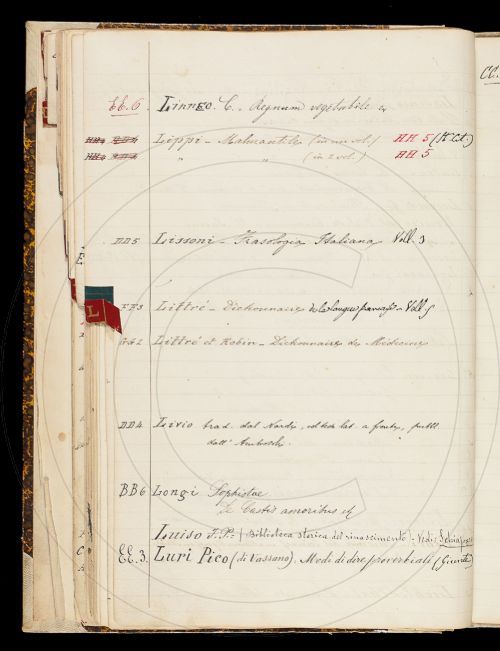 CC.
EE.6. Linneo. C. Regnum vegetabile
Lippi – Malmantile (in un vol.) HH 5 (K.C.I.)
" " (in 2 vol.) HH 5
DD5 Lissoni – Frasologia Italiana Voll. 3
L
FF3 Littré – Dictionnaire de la langue française – Voll 5
GG2 Littré et Robin – Dictionnaire de Médecine
DD4 Livio trad. dal Nardi, col testo lat. a fronte, pubbl.
dall'Ambrosoli.
BB6 Longi Sophistae
De Castis amoribus
Luiso F. P. (Biblioteca storica del rinascimento). Vedi
EE.3. Luri Pico (di Vassano). Modi di dire proverbiali (Giunte)